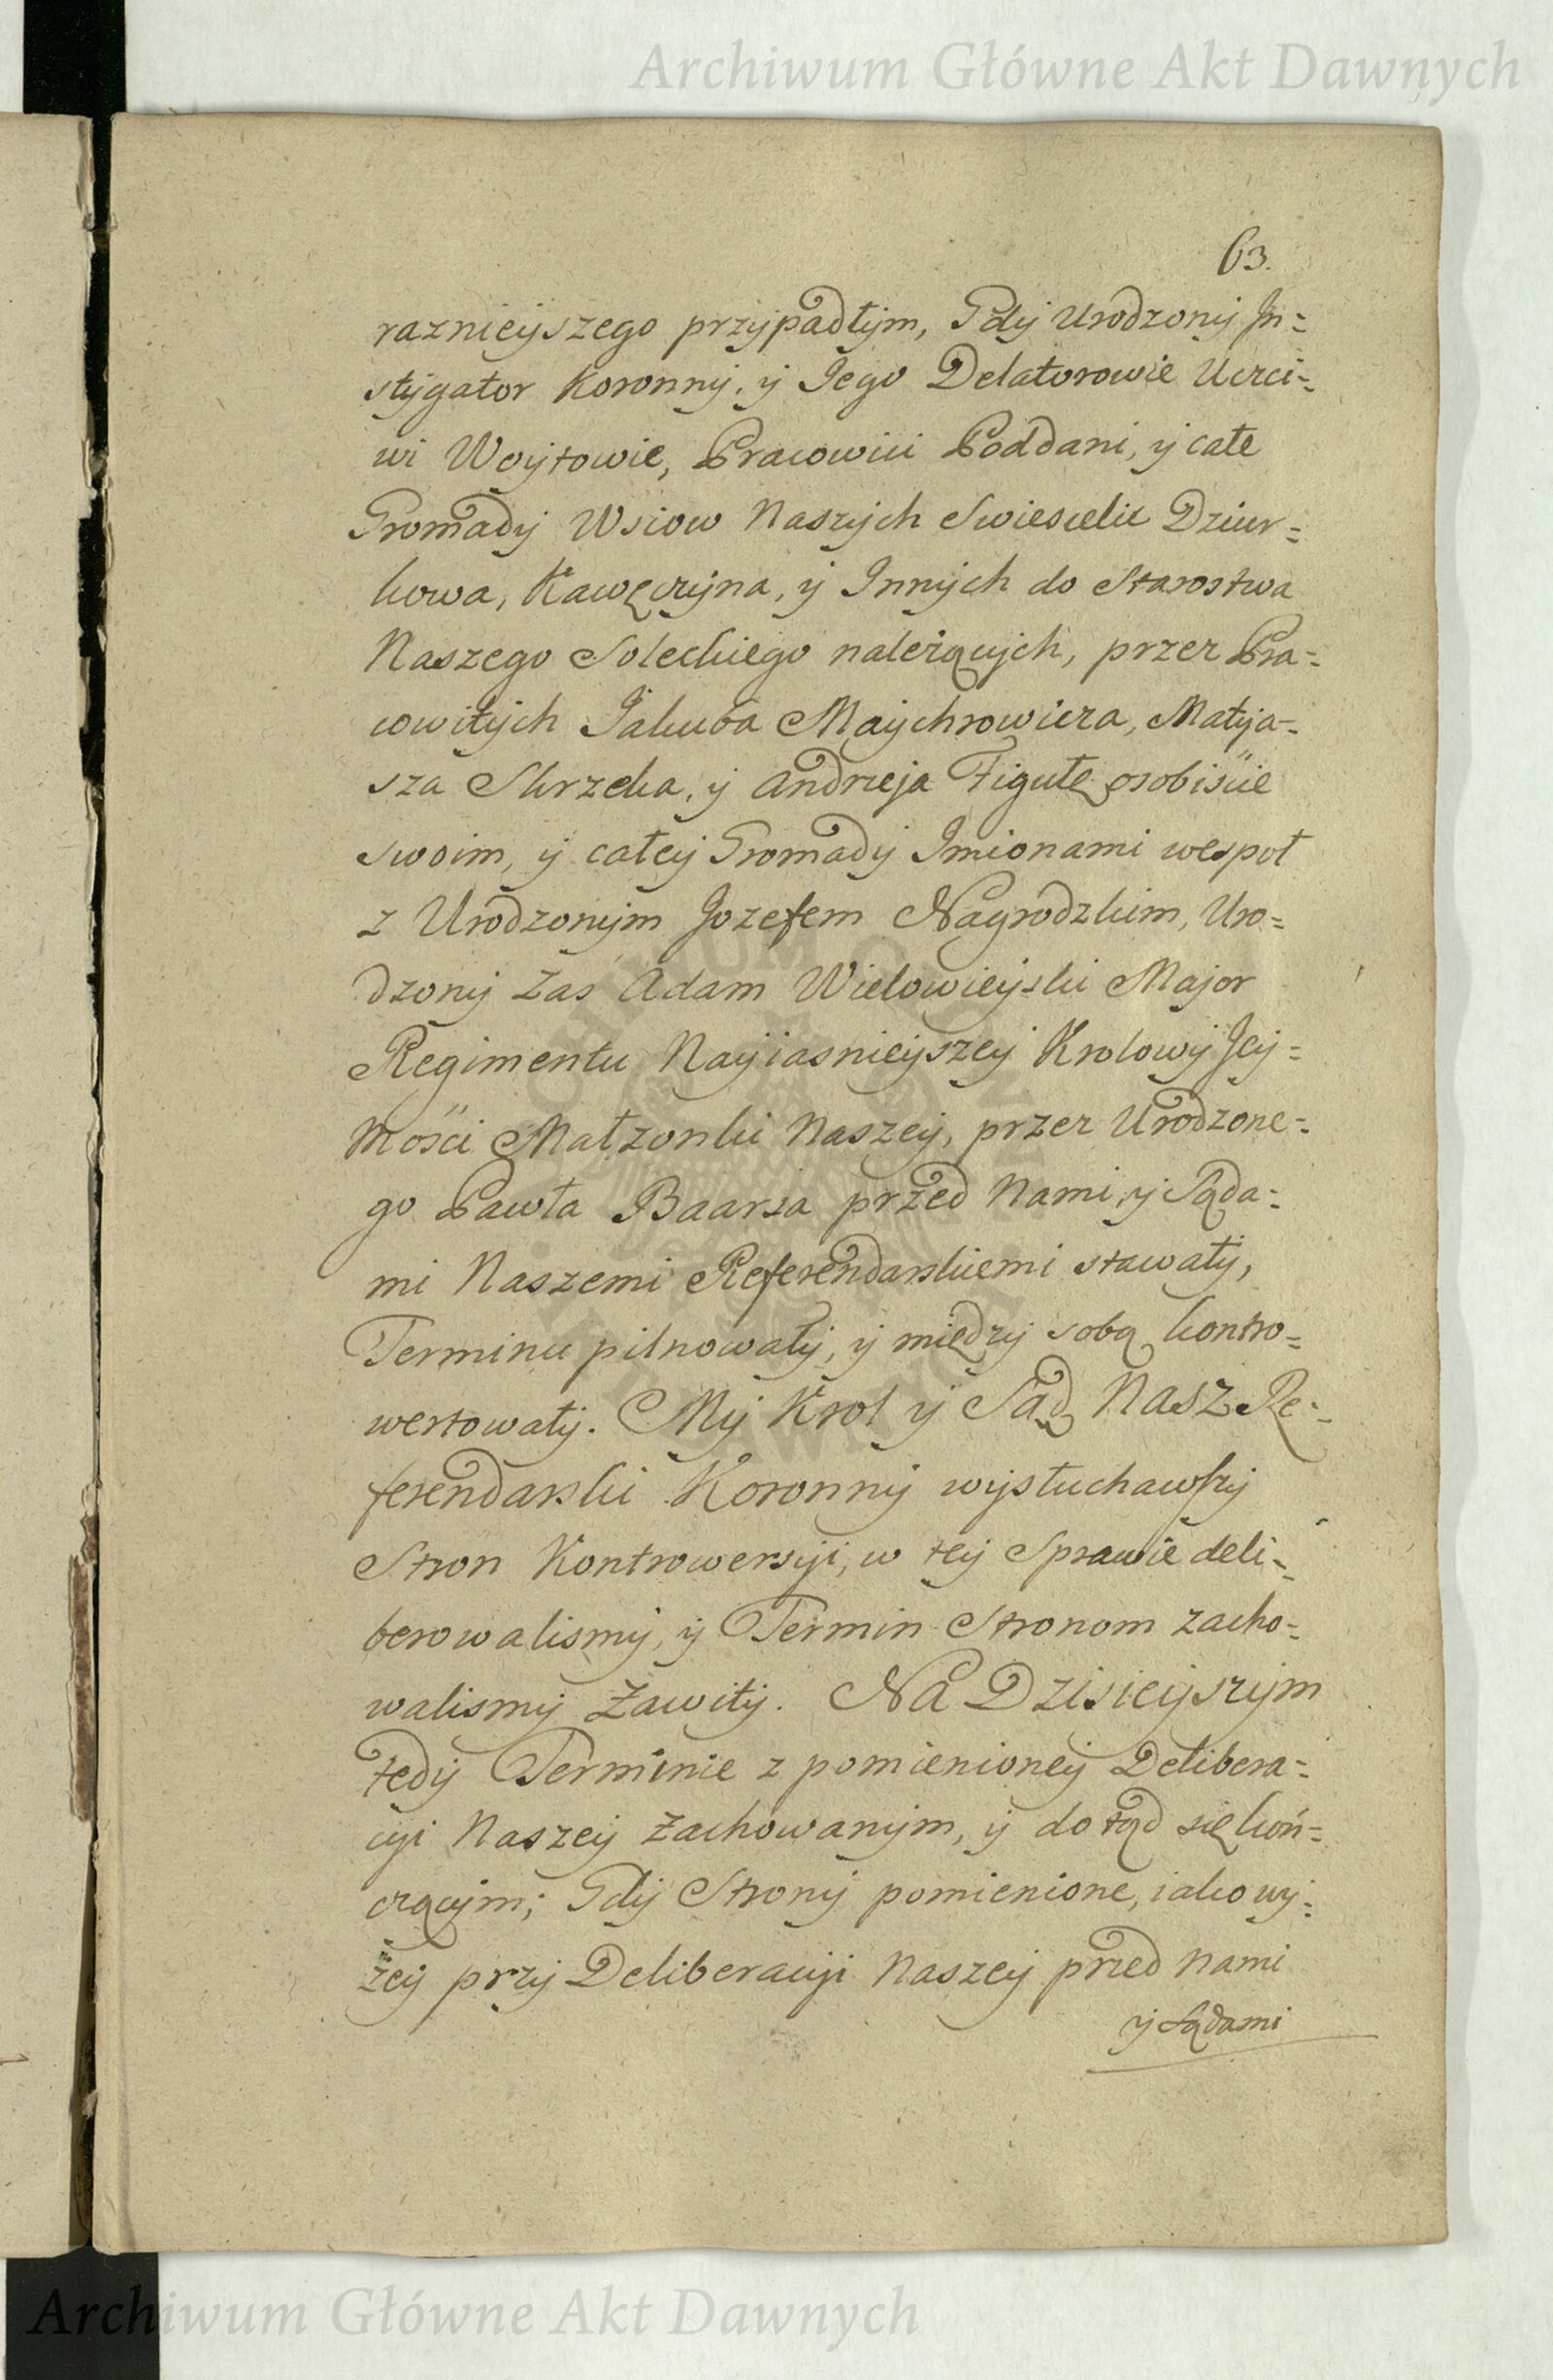 Archiwum Główne Akt Dawnych
63.
raznieyszego przypadłym, Gdy Urodzony In=
stygator Koronny, y Jego Delatorowie Uczci=
wi Woytowie, Pracowici Poddani, y całe
Gromady Wsiow Naszych Swiesielic Dziur=
kowa, Kawęczyna, y Innych do Starostwa
Naszego Soleckiego należących, przez Pra=
cowitych Jakuba Maychrowicza, Matya=
sza Skrzeka, y Andrzeja Figułę osobiście
swoim, y całey Gromady Imionami wespoł
z Urodzonym Jozefem Nagrodzkim, Uro=
dzony Zas Adam Wielowieyski Major
Regimentu Nayiasnieyszey Krolowy Jey=
mości Małzonki Naszey, przez Urodzone=
go Pawła Baarsa przed Nami, y Sąda=
mi Naszemi Referendarskiemi stawały,
Terminu pilnowały, y między sobą kontro=
wertowały. My Krol y Sąd Nasz Re=
ferendarski Koronny wysłuchawszy
Stron Kontrowersyi, w tey Sprawie deli=
berowalismy, y Termin Stronom zacho=
walismy Zawity. Na Dzisieyszym
tedy Terminie z pomienioney Delibera=
cyi Naszey Zachowanym, y dotąd się koń=
czącym; Gdy Strony pomienione, iako wy=
żey przy Deliberacyi Naszey przed Nami
y Sądami
Archiwum Główne Akt Dawnych